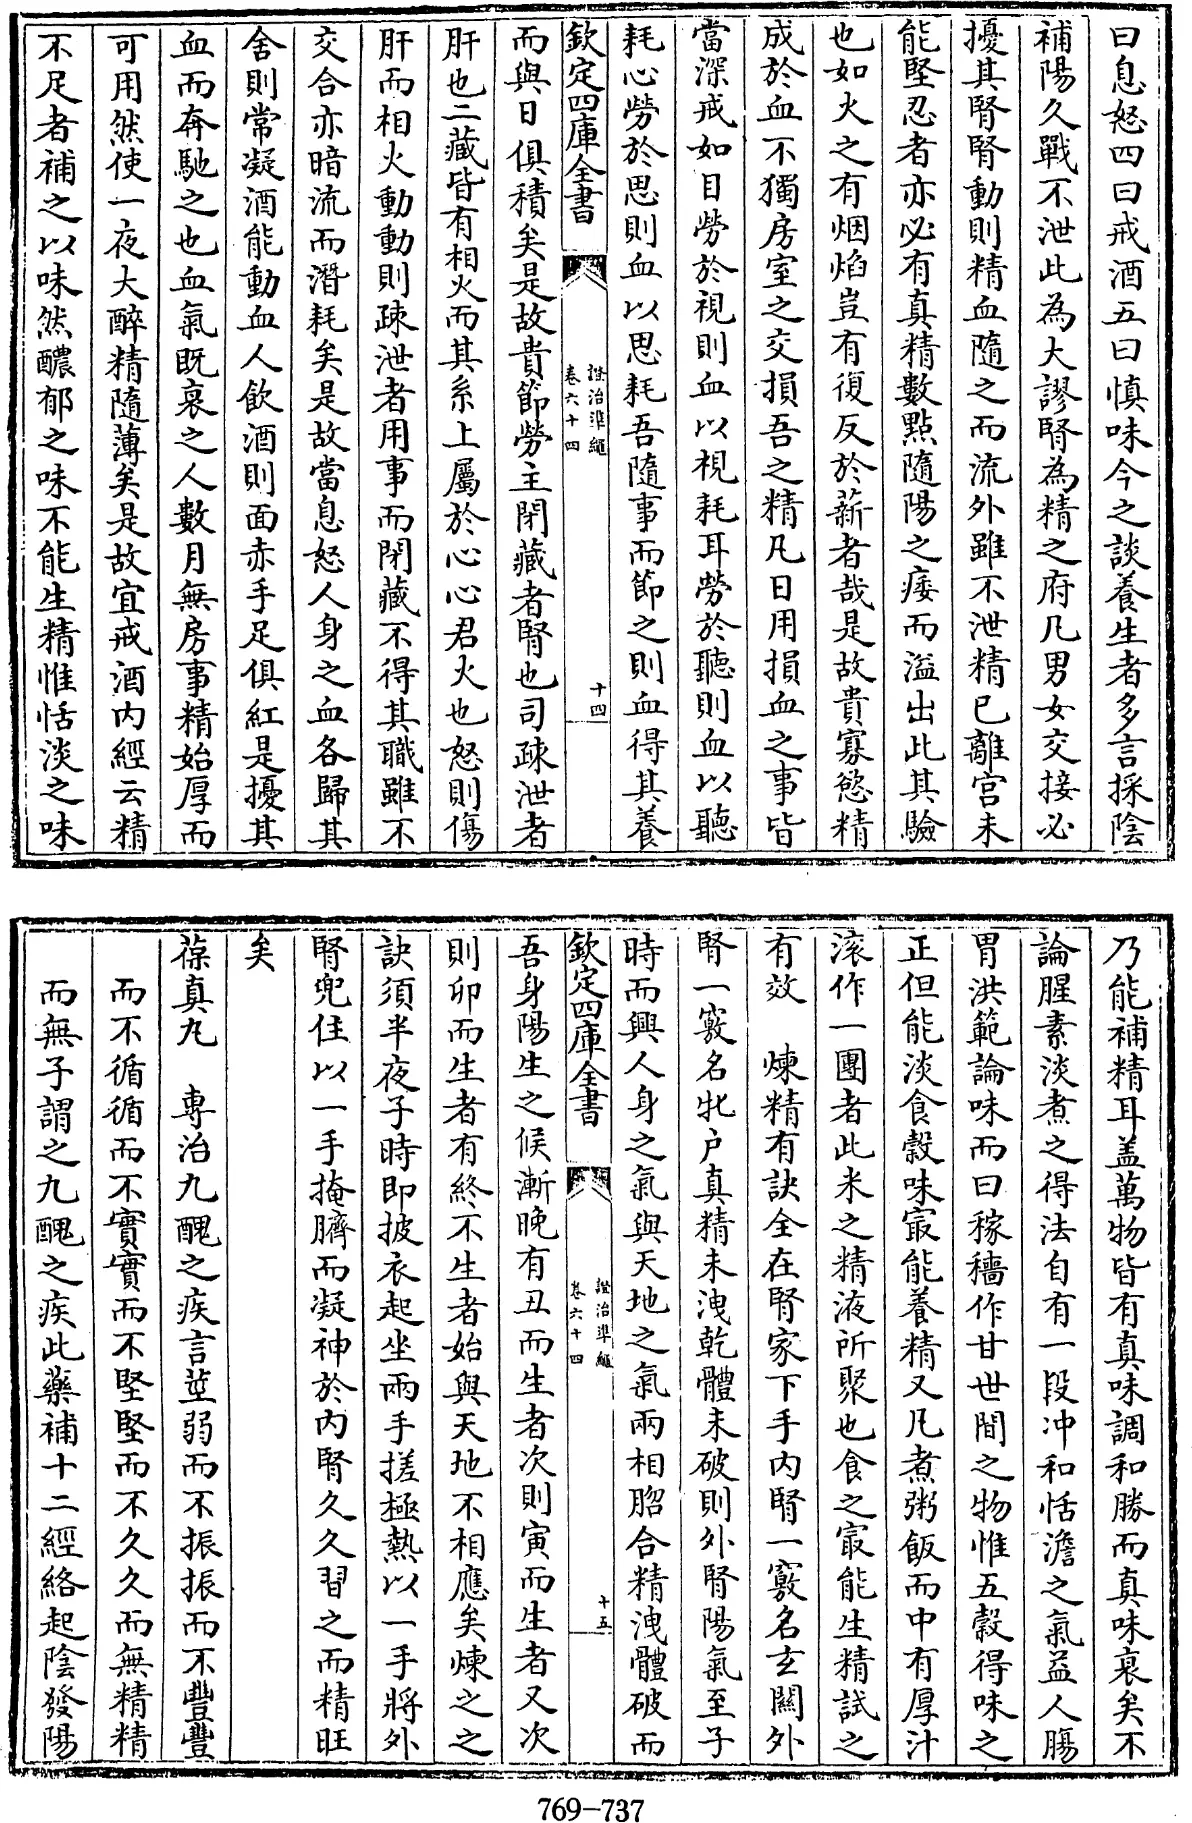 曰息怒四曰戒酒五曰慎味今之談養生者多言採陰
補陽久戰不泄此為大謬腎為精之府凡男女交接必
擾其腎腎動則精血隨之而流外雖不泄精已離宮未
能堅忍者亦必有真精數點隨陽之痿而溢出此其驗
也如火之有烟焰豈有復反於薪者哉是故貴寡慾精
成於血不獨房室之交損吾之精凡日用損血之事皆
當深戒如目勞於視則血以視耗耳勞於聽則血以聽
耗心勞於思則血以思耗吾隨事而節之則血得其養
欽定四庫全書
證治準繩
卷六十四
十四
而與日俱積矣是故貴節勞主閉藏者腎也司疎泄者
肝也二藏皆有相火而其系上屬於心心君火也怒則傷
肝而相火動動則疎泄者用事而閉藏不得其職雖不
交合亦暗流而潛耗矣是故當息怒人身之血各歸其
舍則常凝酒能動血人飲酒則面赤手足俱紅是擾其
血而奔馳之也血氣既衰之人數月無房事精始厚而
可用然使一夜大醉精隨薄矣是故宜戒酒內經云精
不足者補之以味然醲郁之味不能生精惟恬淡之味
乃能補精耳盖萬物皆有真味調和勝而真味衰矣不
論腥素淡煮之得法自有一段冲和恬澹之氣益人腸
胃洪範論味而曰稼穡作甘世間之物惟五穀得味之
正但能淡食穀味㝡能養精又凡煮粥飯而中有厚汁
滚作一團者此米之精液所聚也食之㝡能生精試之
有效　煉精有訣全在腎家下手內腎一竅名玄關外
腎一竅名牝户真精未洩乾體未破則外腎陽氣至子
時而興人身之氣與天地之氣兩相脗合精洩體破而
欽定四庫全書
證治準繩
卷六十四
十五
吾身陽生之候漸晚有丑而生者次則寅而生者又次
則卯而生者有終不生者始與天地不相應矣煉之之
訣須半夜子時即披衣起坐兩手搓極熱以一手將外
腎兜住以一手掩臍而凝神於內腎久久習之而精旺
矣
葆真丸　專治九醜之疾言莖弱而不振振而不豐豐
而不循循而不實實而不堅堅而不久久而無精精
而無子謂之九醜之疾此藥補十二經絡起陰發陽
769-737